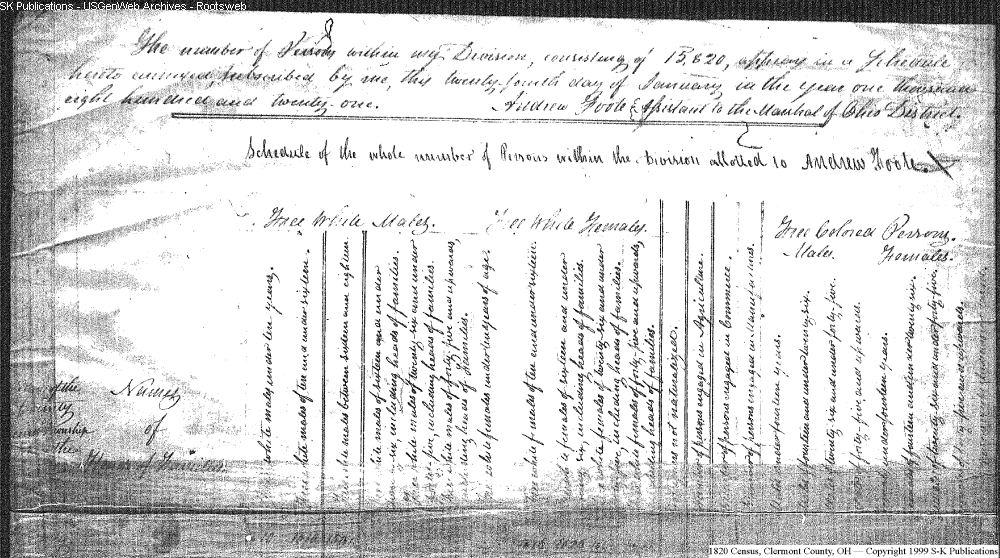 SK Publications - USGenWeb Archives - Rootsweb
The number of Persons within my Division, consisting of 15,820, appears in a Schedule
hereto annexed, subscribed by me, this twenty fourth day of January in the year one thousand
eight hundred and twenty-one. Andrew Foote Assistant to the Marshal of Ohio District.
Schedule of the whole number of Persons within the Division allotted to Andrew Foote.
Free White Males. Free White Females.
Free Colored Persons.
Males Females.
white males under ten years.
white males of ten and under sixteen.
white males between sixteen and eighteen
males of sixteen and under
six, including heads of families.
white males of twenty six and under
five, including heads of families.
males of forty five and upwards
including heads of families.
white females under ten years of age
white females of ten and under sixteen.
females of sixteen and under
six, including heads of families.
females of twenty six and under
including heads of families.
females of forty five and upwards
heads of families.
not naturalized
of persons engaged in Agriculture.
of persons engaged in Commerce.
of persons engaged in Manufactures.
under fourteen years.
of fourteen and under twenty six.
of twenty six and under forty five.
of forty five and upwards.
under fourteen years.
of fourteen and under twenty six.
of twenty six and under forty five.
of the
County
Names
of
Heads of Families
1820 Census, Clermont County, OH — Copyright 1999 S-K Publications